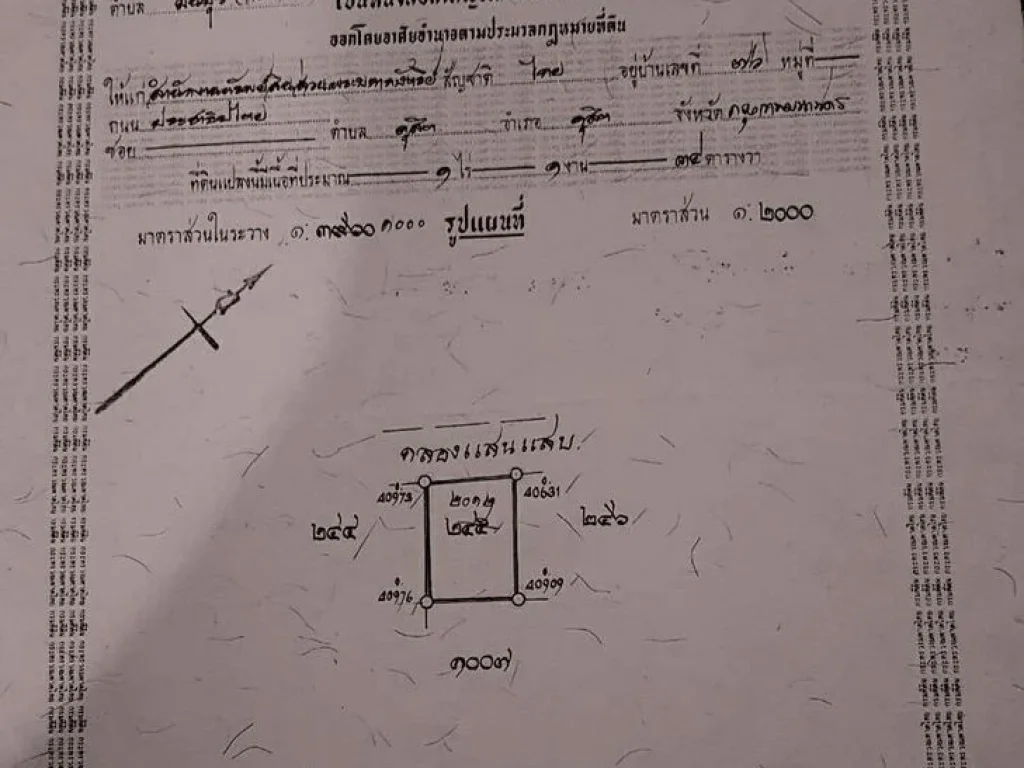 ตำบล
ออกโดยอาศัยอำนาจตามประมวลกฎหมายที่ดิน
ให้แก่ สำนักงานทรัพย์สินส่วนพระมหากษัตริย์ สัญชาติ ไทย อยู่บ้านเลขที่ ๗๖ หมู่ที่
ถนน ประชาธิปไตย
ซอย ตำบล ดุสิต อำเภอ ดุสิต จังหวัด กรุงเทพมหานคร
ที่ดินแปลงนี้มีเนื้อที่ประมาณ ๑ ไร่ ๑ งาน ๓๔ ตารางวา
มาตราส่วนในระวาง ๑: ๑๐๐๐ รูปแผนที่ มาตราส่วน ๑: ๒๐๐๐
น
คลองแสนแสบ
๒๐๑๒
๒๔๔ ๒๔๕ ๒๔๖
๑๐๐๗